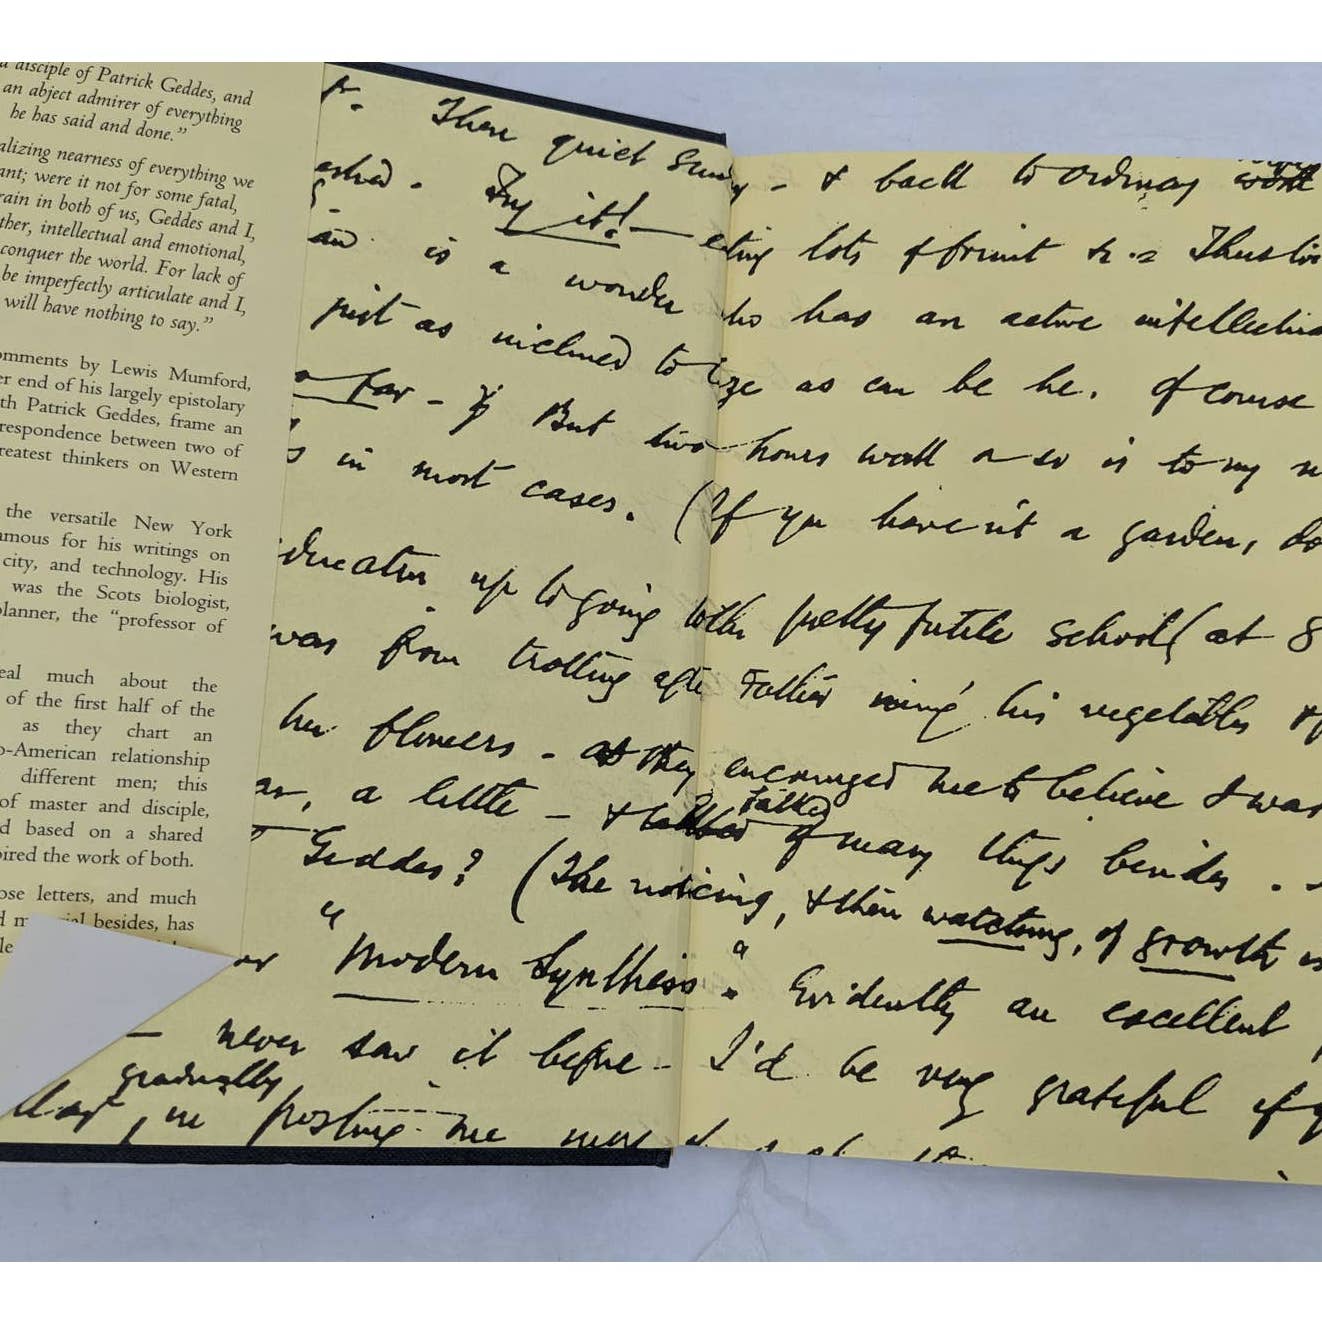 a disciple of Patrick Geddes, and
an abject admirer of everything
he has said and done."
alizing nearness of everything we
ant; were it not for some fatal,
rain in both of us, Geddes and I,
ther, intellectual and emotional,
conquer the world. For lack of
be imperfectly articulate and I,
will have nothing to say."
omments by Lewis Mumford,
er end of his largely epistolary
th Patrick Geddes, frame an
respondence between two of
reatest thinkers on Western
the versatile New York
amous for his writings on
city, and technology. His
was the Scots biologist,
planner, the "professor of
eal much about the
of the first half of the
as they chart an
o-American relationship
different men; this
of master and disciple,
d based on a shared
pired the work of both.
ose letters, and much
d m ial besides, has
Then quiet - & back to ordinary
Try it! - eating lots of fruit &c.
is a wonder who has an active
just as inclined to as can be he. Of course
far - But two hours work or so is to my
in most cases. (If you haven't a garden, do
up to going to the pretty futile school (at 8
was from trotting after Father his vegetables &
her flowers - as they encouraged me to believe I was
a little - & talked of many things besides.
Geddes? (The noticing, & then watching, of growth is
or "Modern Synthesis". Evidently an excellent
- never saw it before - I'd be very grateful if y
gradually
in posting me